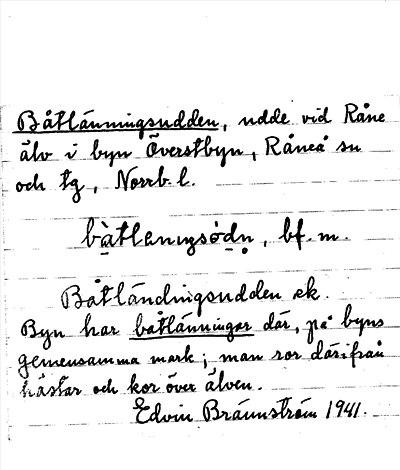 Båtlänningsudden, udde vid Råne
älv i byn Överstbyn, Råneå sn
och tg, Norrb. l.
bf. m.
Båtländingsudden ek.
Byn har båtlänningar där, på byns
gemensamma mark; man ror därifrån
hästar och kor över älven.
Edvin Brännström 1941.